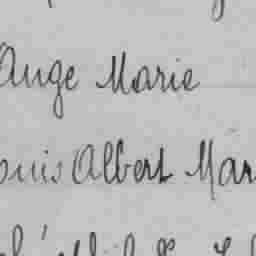 Ange Marie
ouis Albert Mar